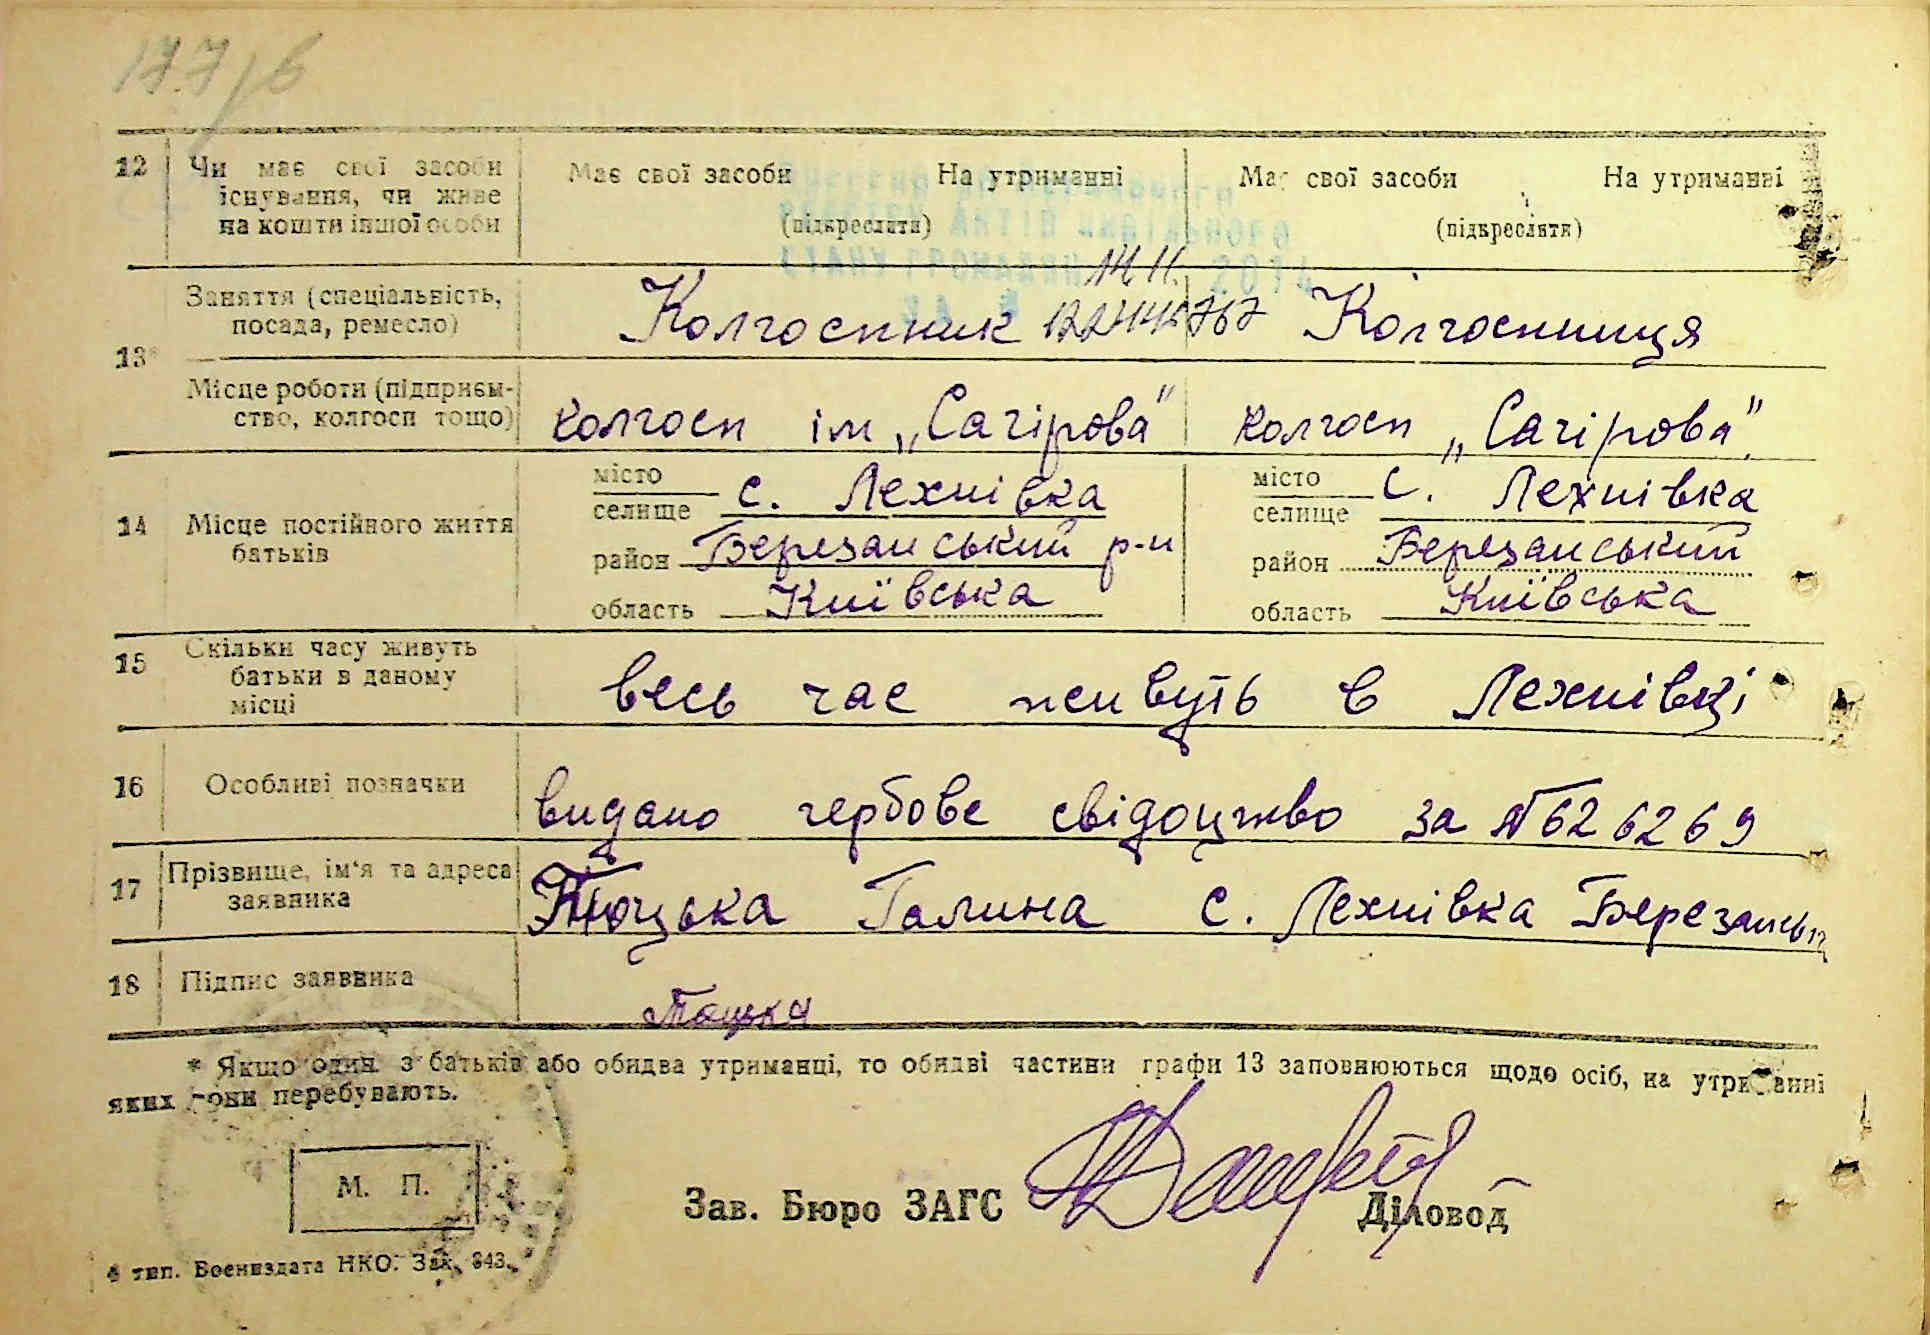 12 Чи має свої засоби існування, чи живе на кошти іншої особи
Має свої засоби На утриманні
(підкреслити)
Має свої засоби На утриманні
(підкреслити)
СТАНУ ГРОМАДЯН 2014
14.11.
13* Заняття (спеціальність, посада, ремесло)
Колгоспник Колгоспниця
Місце роботи (підприємство, колгосп тощо)
колгосп ім „Сагірова" колгосп „Сагірова"
14 Місце постійного життя батьків
місто
селище с. Лехнівка
район Березанський р-н
область Київська
місто
селище с. Лехнівка
район Березанський
область Київська
15 Скільки часу живуть батьки в даному місці
весь час живуть в Лехнівці
16 Особливі позначки
видано гербове свідоцтво за № 626269
17 Прізвище, ім'я та адреса заявника
Тоцька Галина с. Лехнівка
18 Підпис заявника
Тоцька
* Якщо один з батьків або обидва утриманці, то обидві частини графи 13 заповнюються щодо осіб, на утриманні
яких вони перебувають.
М. П.
Зав. Бюро ЗАГС Діловод
тип. Воениздата НКО. Зак. 843.